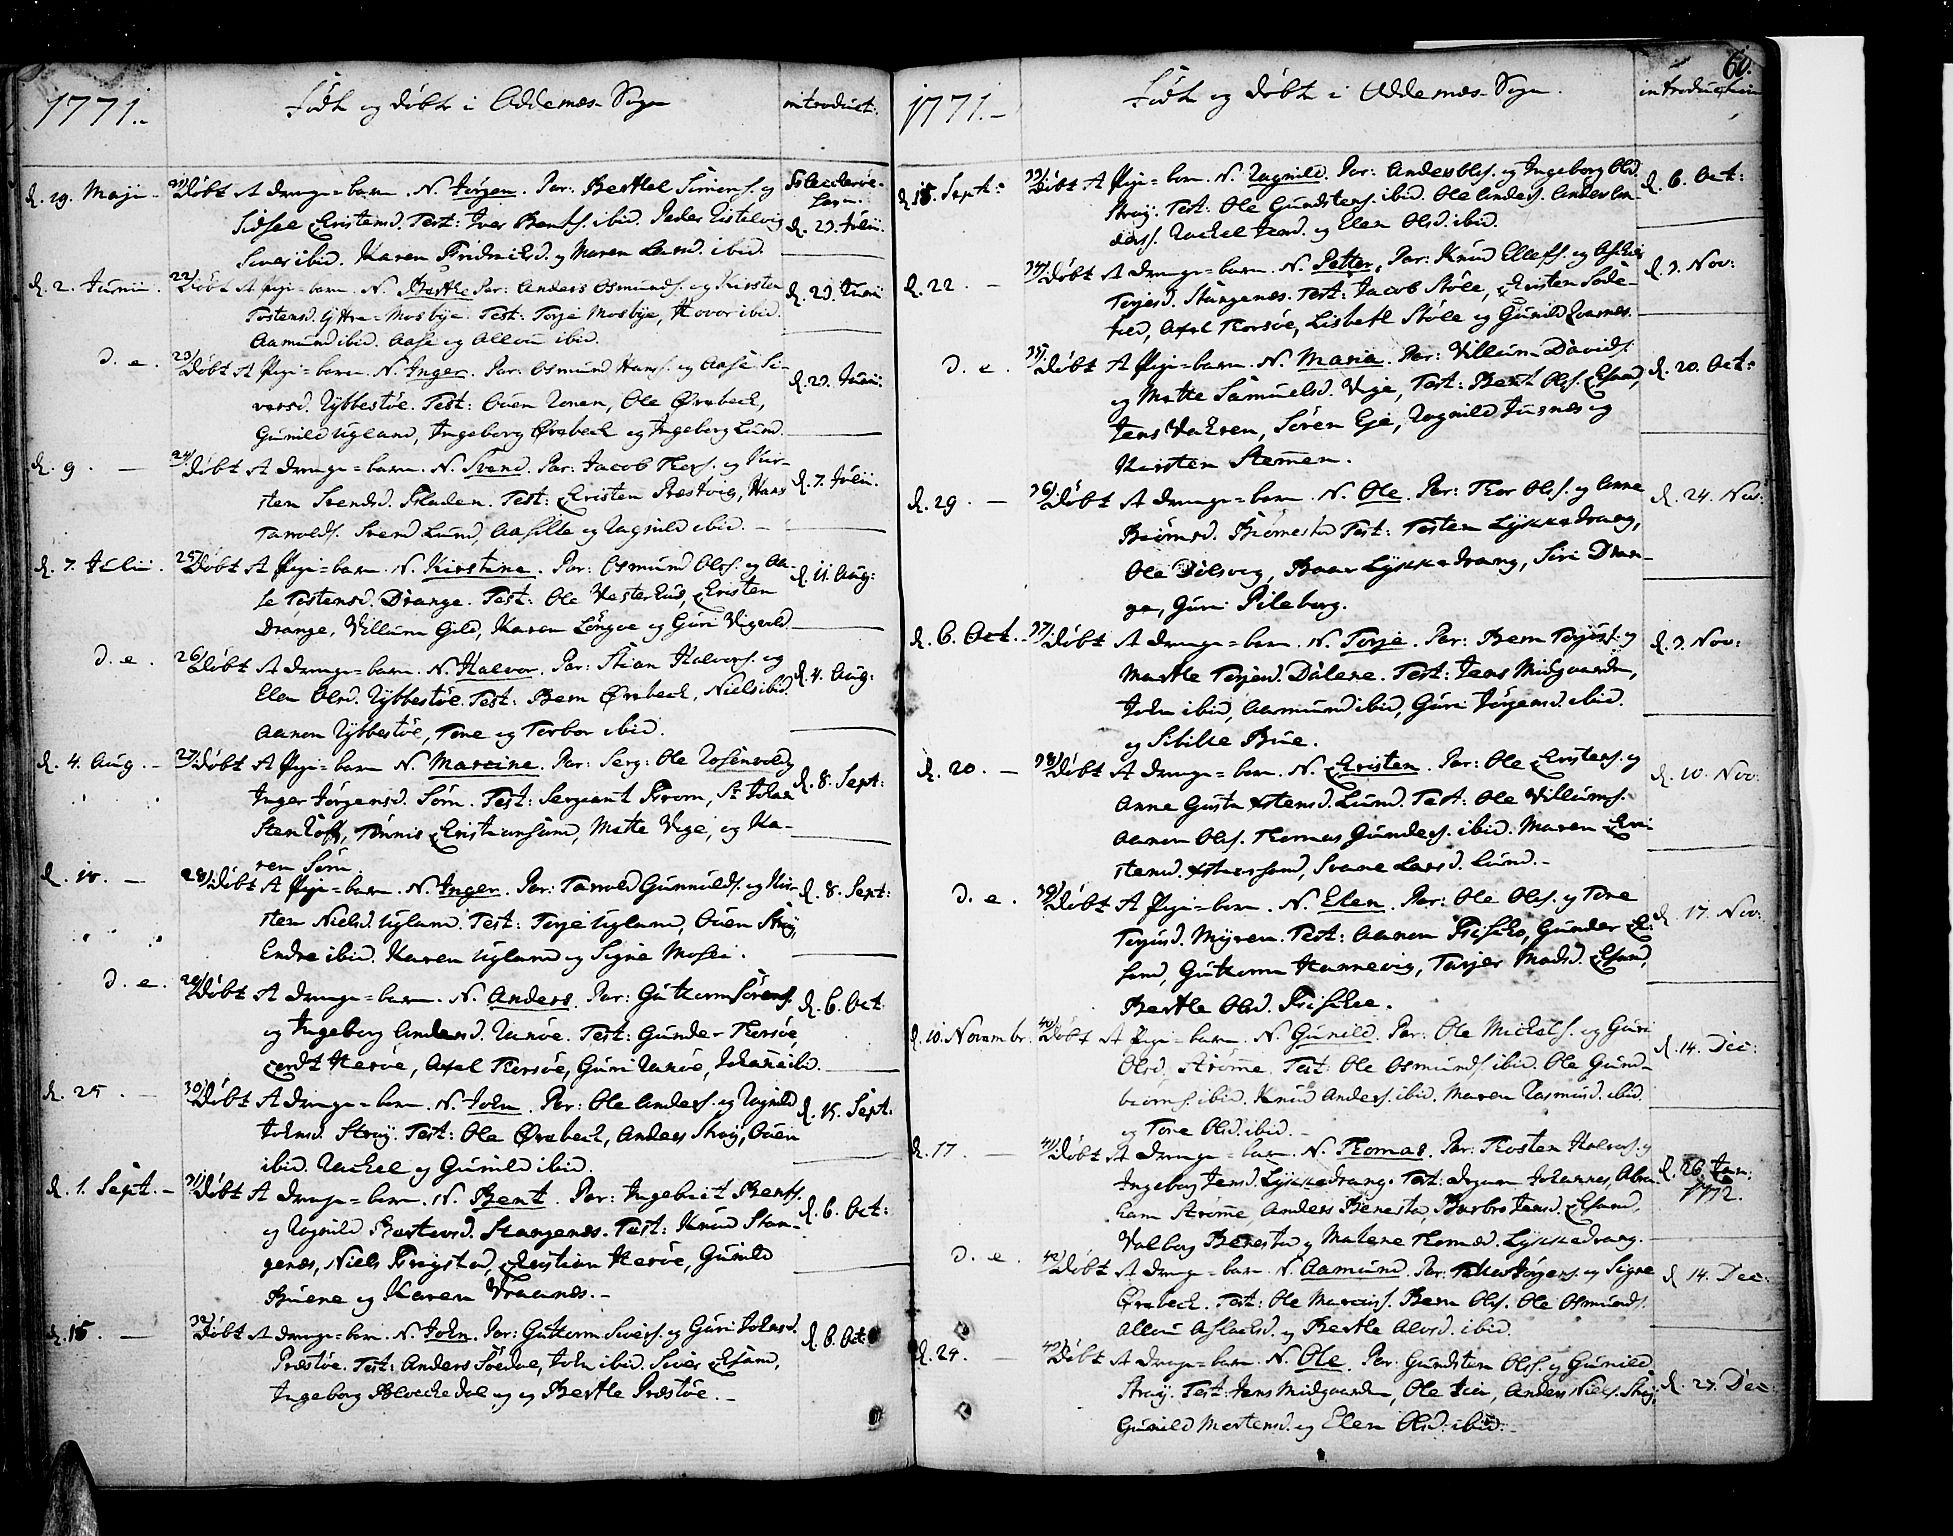 1771.
Född og döbt i Oddernes-Sogn
introduct:
d. 19. Maji
21) Döbt 1 drenge-barn. N. Jörgen. Par: Berthel Simens. og
Sidsel Cristensd. Test: Iver Bents. ibid. Peder
Siver ibid. Karen Fridrichsd. og Maren Larsd. ibid.
d. 23. Junii.
d. 2. Junii
22) Döbt 1 Pige-barn. N. Berthe. Par: Anders Osmunds. og Kirsten
Tostensd. Mosbye. Test: Torje Mosbye, Hovor ibid.
Aamund ibid. Aase og Allou ibid.
d. 23. Junii
D. e.
23) Döbt 1 Pige-barn. N. Inger. Par: Osmund Hans. og Aase Si-
versd. Rybbestöe. Test: Ouen Ronen, Ole Örebech,
Gunild Ugland, Ingeborg Örebech og Ingeborg Lund.
d. 23. Junii:
d. 9. —
24) Döbt 1 drenge-barn. N. Svend. Par: Jacob Thors. og Kir-
sten Svendsd. Fladen. Test: Cristen Præstvig, Hans
Tarvolds. Svend Lund, Aasille og Ragnild ibid. —
d. 7. Julii.
d. 7. Julii
25) Döbt 1 Pige-barn. N. Kirstina. Par: Osmund Ols. og Aa-
se Tostensd. Drange. Test: Ole Vesterhus, Cristen
Drange, Villum Gild, Karen Löngve og Guri Vigvold
d. 11. Aug:
D. e.
26) Döbt 1 drenge-barn. N. Halvor. Par: Stian Halvors. og
Elen Olsd. Rybbestöe. Test: Bern Örebech, Niels ibid.
Aanon Rybbestöe, Tone og Torbor ibid.
d. 4. Aug:
d. 4. Aug. —
27) Döbt 1 Pige-barn N. Marcine. Par: Serg: Ole Rosenvold
Inger Jörgensd. Söm. Test: Sergeant From, Sr Johan
Stenhoff, Tönnis Cristiansand, Mette Vige, og Ka-
ren Söm
d. 8. Sept:
d. 18. —
28) Döbt 1 Pige-barn. N. Inger. Par: Tarvold Gunnulds. og Kir-
sten Nielsd. Ugland. Test: Torje Ugland, Ouen Stray,
Endre ibid. Karen Ugland og Signe Mosei.
d. 8. Sept:
D. e.
29) Döbt 1 drenge-barn. N. Anders. Par: Guttorm Sörens.
og Ingeborg Andersd. Randöe. Test: Gunder Thorsöe,
Heröe, Axel Thorsöe, Guri Randöe, Johanne ibid.
d. 6. Oct
d. 25 —
30) Döbt 1 drenge-barn. N. John. Par: Ole Anders. og Ragnild
Johnsd. Stray. Test: Ole Örebech, Anders Stray, Ouen
ibid. Rachel og Gunild ibid.
d. 15. Sept:
d. 1. Sept. —
31) Döbt 1 drenge-barn. N. Bent. Par: Ingebret Bents.
og Ragnild Stangenes. Test: Knud Stan-
genes, Niels Frigstad, Cristian Heröe, Gunild
Buene og Karen Vraanes. —
d. 6. Oct:
d. 15 —
32) Döbt 1 drenge-barn. N. John. Par: Guttorm Sivers. og Guri Johnsd.
Præstöe. Test: Anders, John ibid. Siver
Ingeborg og Berthe Præstöe. —
d. 6. Oct
60.
1771. —
Född og döbt i Oddernes-Sogn.
introduction
d 15. Sept:
33) Döbt 1 Pige-barn. N. Ragnild. Par: Anders Ols. og Ingeborg Olsd.
Stray. Test: Ole Gundstens. ibid. Ole Anders. Anders An-
ders. Rachel Jensd. og Elen Olsd. ibid.
d. 6. Oct:
d. 22. —
34) Döbt 1 drenge-barn. N. Petter. Par: Knud Ellefs. og
Torjesd. Stangenes. Test: Jacob Stöle, Cristen
Axel Thorsöe, Lisbeth Stöle og Gunild Qvarnes.
d. 3. Nov:
D. e.
35) Döbt 1 Pige-barn. N. Maria. Par: Villum Davids.
og Mette Samuelsd. Vige, Test: Bent Ols.
Jens, Sören Eje, Ragnild og
Kirsten Stemen.
d. 20. Oct:
d. 29. —
36) Döbt 1 drenge-barn. N. Ole. Par: Thor Ols. og Anne
Biörnsd. Biörnestad Test: Tosten Lykkedrang,
Ole Dölsvig, Baar Lykkedrang, Siri Dran-
ge, Guri Pileborg.
d. 24. Nov:
d. 6. Oct.
37) Döbt 1 drenge-barn. N. Torje. Par: Bern Torjus. og
Marthe Torjesd. Dalene. Test: Jens Midgaarden,
John ibid, Aamund ibid, Guri Jörgensd. ibid.
og Sibille Bue.
d. 3. Nov:
d. 20. —
38) Döbt 1 drenge-barn. N. Cristen. Par: Ole Cristens. og
Anne Lund. Test: Ole Villums.
Aanon Ols. Thomas Gunders. ibid. Maren Cri-
stensd., Svane Larsd. Lund. —
d. 10. Nov:
D. e.
39) Döbt 1 Pige-barn. N. Elen. Par: Ole Ols. og Tone
Torjusd. Myren. Test: Aanon, Gunder
Guttorm Hannevig, Torjer Madsd.
Berthe Olsd.
d. 17. Nov:
d. 10. Novembr.
40) Döbt 1 Pige-barn. N. Gunild. Par: Ole Michels. og Guri
Olsd. Strömme. Test: Ole Osmunds. ibid. Ole Gund-
biörns. ibid. Knud Anders. ibid. Maren Rasmusd. ibid.
og Tone Olsd. ibid. —
d. 14. Dec:
d. 17 —
41) Döbt 1 drenge-barn. N. Thomas. Par: Thosten Halvors. og
Ingeborg Jensd. Lykkedrang. Test: Johannes, Abra-
ham Strömme, Anders Benestad, Barbro Jensd.
Valborg Benestad og Malene Thomesd. Lykkedrang.
d. 26. Jan:
1772.
D. e.
42) Döbt 1 drenge-barn. N. Aamund. Par: Jörgens. og Signe
Örebech. Test: Ole Marcus. Bern Ols. Ole Osmunds.
Allou Aslachsd. og Berthe Alvsd. ibid.
d. 14. Dec:
d. 24. —
43) Döbt 1 drenge-barn. N. Ole. Par: Gundsten Ols. og Gunild
Stray. Test: Jens Midgaarden, Ole, Anders Niels. Stray,
Gunild Mortensd. og Elen Olsd. ibid. —
d. 27. Dec: